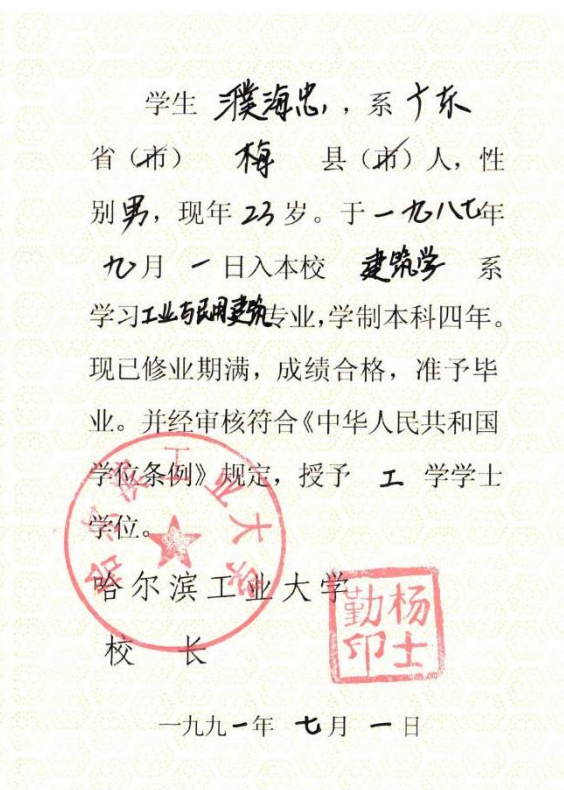 学生 濮海忠,,系 广东
省（市） 梅 县（市）人，性
别男，现年 23 岁。于一九八七年
九月 一日入本校 建筑学 系
学习工业与民用建筑专业，学制本科四年。
现已修业期满，成绩合格，准予毕
业。并经审核符合《中华人民共和国
学位条例》规定，授予 工 学学士
学位。
哈尔滨工业大学
哈尔滨工业大学
校 长
杨士勤印
一九九一年 七月 一日